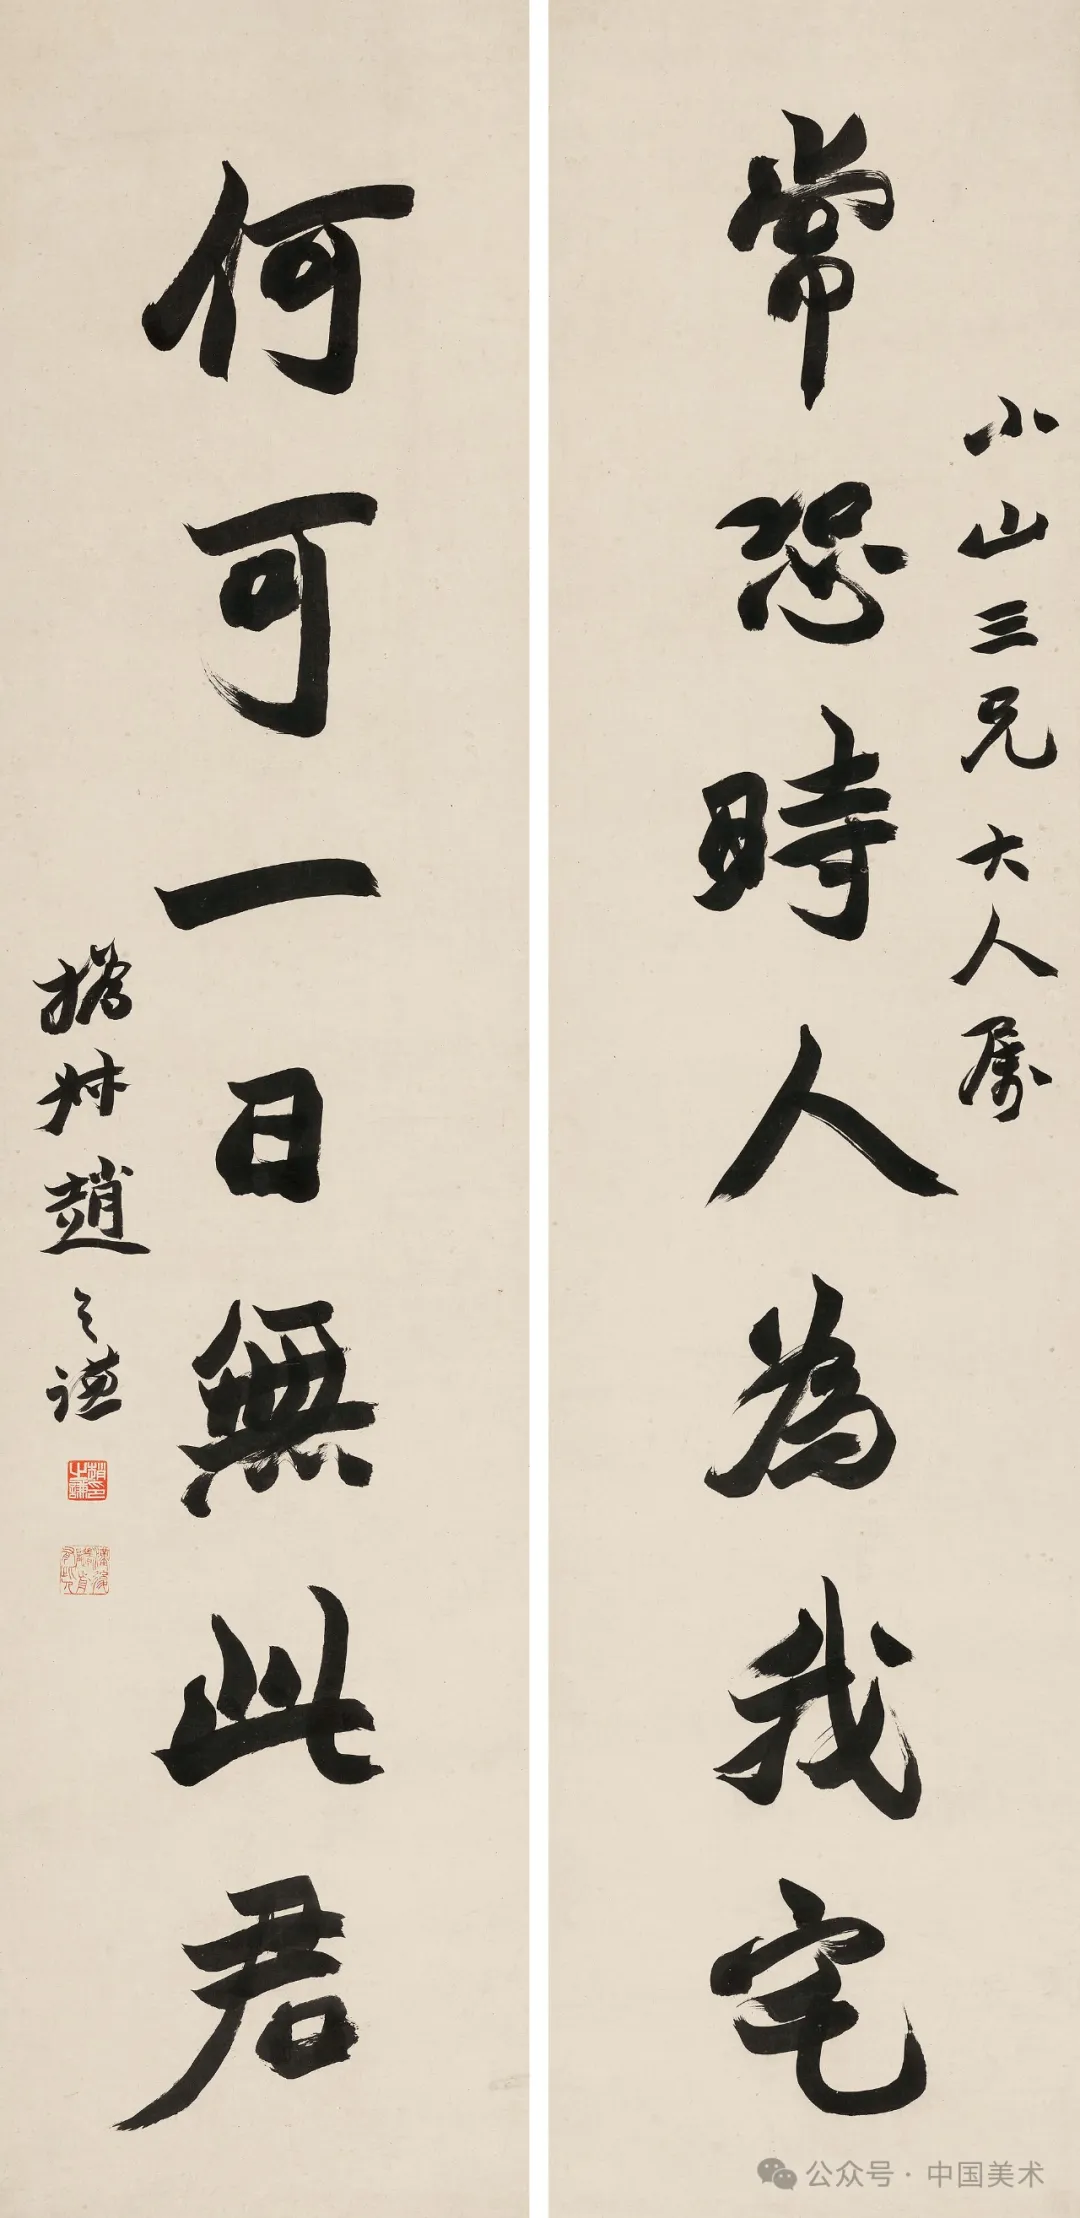 小山三兄大人属
常恐時人為我宅
何可一日無此君
撝叔趙之谦
趙之謙印
公众号 · 中国美术